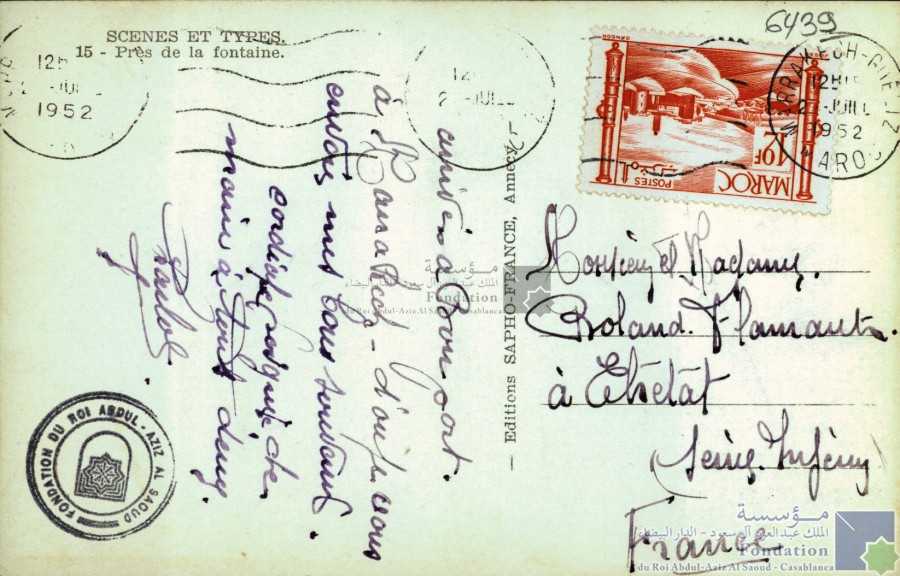 SCENES ET TYPES.
15 - Près de la fontaine.
6439
12H
2 - JUIL
1952
12
2 - JUIL
MARRAKECH-GUELIZ
12H
2 - JUIL
1952
MAROC
POSTES
MAROC
10F
arrivés à bon port.
à Marrakech - d'où je vous
envoie mes bons souvenirs.
cordiale poignée de
main à tous deux
Editions SAPHO-FRANCE, Annecy
Monsieur et Madame
Roland Flamant
à Etretat
(Seine Inférieure)
France
FONDATION DU ROI ABDUL-AZIZ AL SAOUD
مؤسسة
الملك عبد العزيز آل سعود - الدار البيضاء
Fondation
du Roi Abdul-Aziz Al Saoud - Casablanca
مؤسسة
الملك عبد العزيز آل سعود - الدار البيضاء
Fondation
du Roi Abdul-Aziz Al Saoud - Casablanca